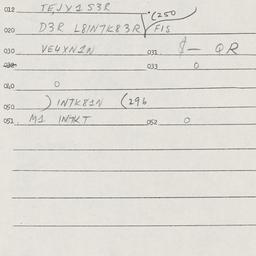 012 TEJY1 S3R (250
020 D3R L8IN7K83R FIS
030 VE4XN1N 031 $— QR
032 033 0
040 0
050 ) IN7K81N (296
051 M1 IN4KT 052 0